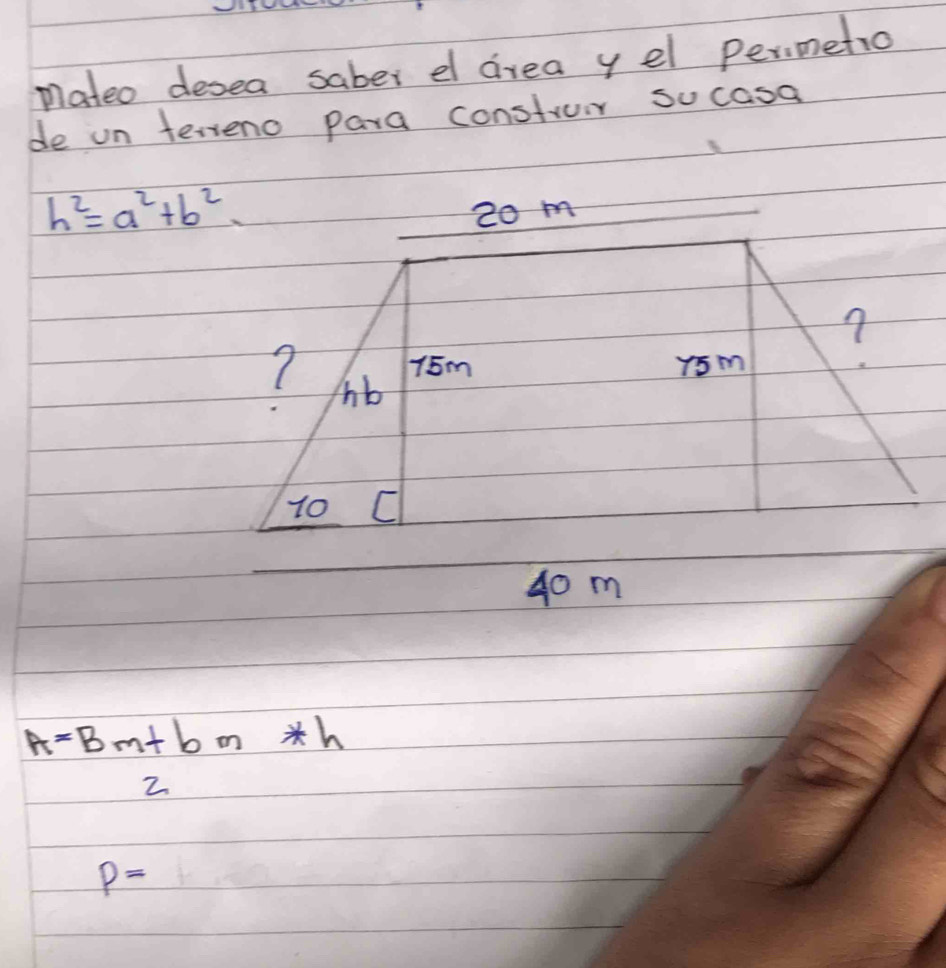 Mateo desea saber el área y el perimetro
de un terreno para construir su casa
h²=a²+b²
20 m
?
?
15m
15m
hb
10
40 m
A=Bm+bm *h
2
P=